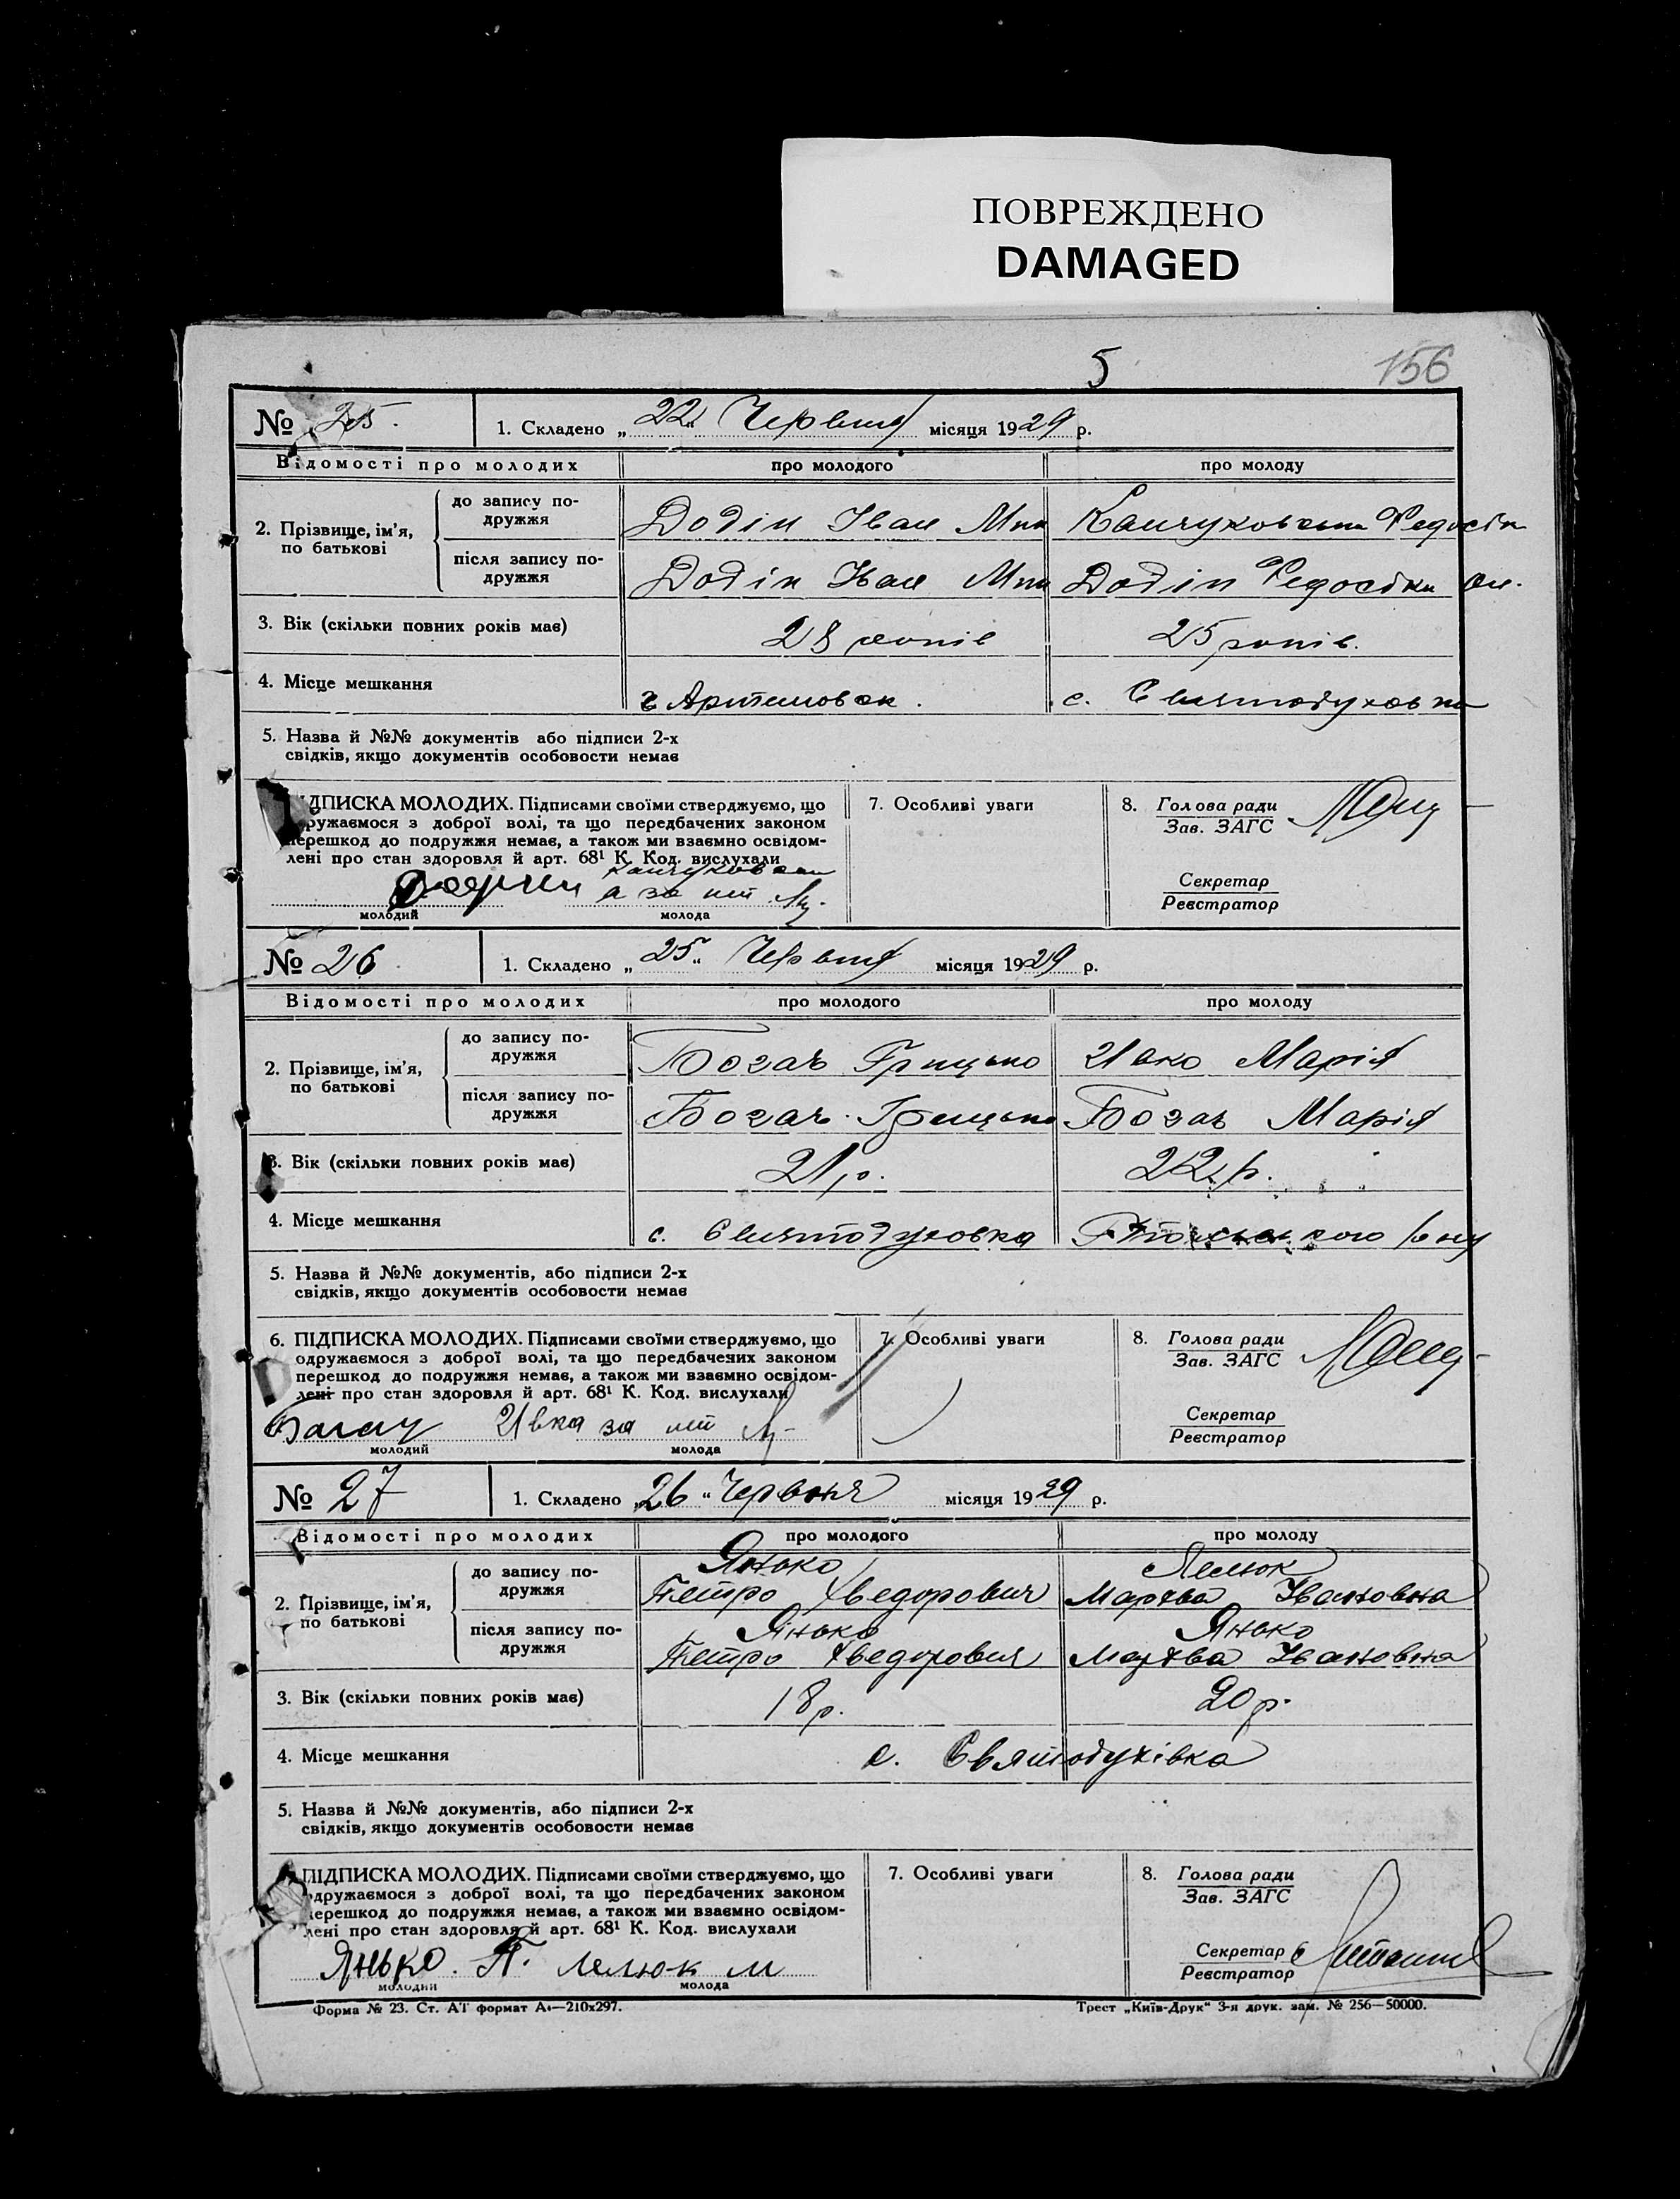 ПОВРЕЖДЕНО
DAMAGED
5
156
№ 25.
1. Складено „22“ Червня місяця 1929 р.
Відомості про молодих
про молодого
про молоду
2. Прізвище, ім'я, по батькові
до запису по-
дружжя
Додін Іван Мик
Федосія
після запису по-
дружжя
Додін Іван Мик
Додін Федосія
3. Вік (скільки повних років має)
28 років
25 років.
4. Місце мешкання
г Артемовск.
с. Святодуховка
5. Назва й №№ документів або підписи 2-х
свідків, якщо документів особовости немає
ДПИСКА МОЛОДИХ. Підписами своїми стверджуємо, що
ружаємося з доброї волі, та що передбачених законом
перешкод до подружжя немає, а також ми взаємно освідом-
лені про стан здоровля й арт. 68¹ К. Код. вислухали
а за
молодий
молода
7. Особливі уваги
8. Голова ради
Зав. ЗАГС
Секретар
Реєстратор
№ 26
1. Складено „25“ Червня місяця 1929 р.
Відомості про молодих
про молодого
про молоду
2. Прізвище, ім'я,
по батькові
до запису по-
дружжя
Богач Грицько
Ивко Марія
після запису по-
дружжя
Богач Грицько
Богач Марія
3. Вік (скільки повних років має)
21 р.
22 р.
4. Місце мешкання
с. Святодуховка
5. Назва й №№ документів, або підписи 2-х
свідків, якщо документів особовости немає
6. ПІДПИСКА МОЛОДИХ. Підписами своїми стверджуємо, що
одружаємося з доброї волі, та що передбачених законом
перешкод до подружжя немає, а також ми взаємно освідом-
лені про стан здоровля й арт. 68¹ К. Код. вислухали
Богач Ивка за
молодий
молода
7. Особливі уваги
8. Голова ради
Зав. ЗАГС
Секретар
Реєстратор
№ 27
1. Складено „26“ Червня місяця 1929 р.
Відомості про молодих
про молодого
про молоду
2. Прізвище, ім'я,
по батькові
до запису по-
дружжя
Янько
Петро Хведорович
Лелюк
Мархва Івановна
після запису по-
дружжя
Янько
Петро Хведорович
Янько
Мархва Івановна
3. Вік (скільки повних років має)
18 р.
20 р.
4. Місце мешкання
с. Святодухівка
5. Назва й №№ документів, або підписи 2-х
свідків, якщо документів особовости немає
ПІДПИСКА МОЛОДИХ. Підписами своїми стверджуємо, що
одружаємося з доброї волі, та що передбачених законом
перешкод до подружжя немає, а також ми взаємно освідом-
лені про стан здоровля й арт. 68¹ К. Код. вислухали
Янько. П. Лелюк М
молодий
молода
7. Особливі уваги
8. Голова ради
Зав. ЗАГС
Секретар
Реєстратор
Форма № 23. Ст. АТ формат А₄—210x297.
Трест „Київ-Друк“ 3-я друк. зам. № 256—50000.